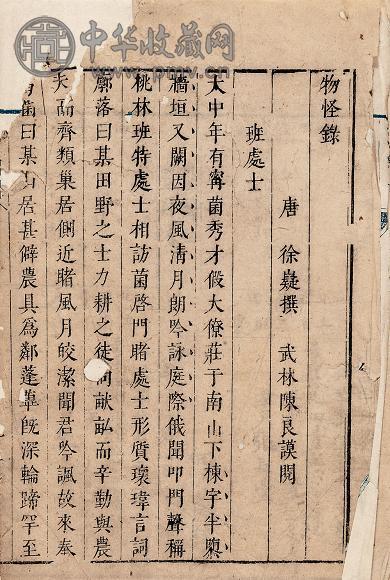 中华收藏网
物怪錄
唐 徐嶷撰 武林陳良謨閱
班處士
大中年有甯菌秀才假大僚莊于南山下棟宇半墮
牆垣又闕因夜風清月朗吟詠庭際俄聞叩門聲稱
桃林班特處士相訪菌啓門睹處士形質瓌瑋言詞
廓落曰某田野之士力耕之徒向畎畝而辛勤與農
夫而齊類巢居側近睹風月皎潔聞君吟諷故來奉
菌曰某山居甚僻農具爲鄰蓬蓽既深輪蹄罕至